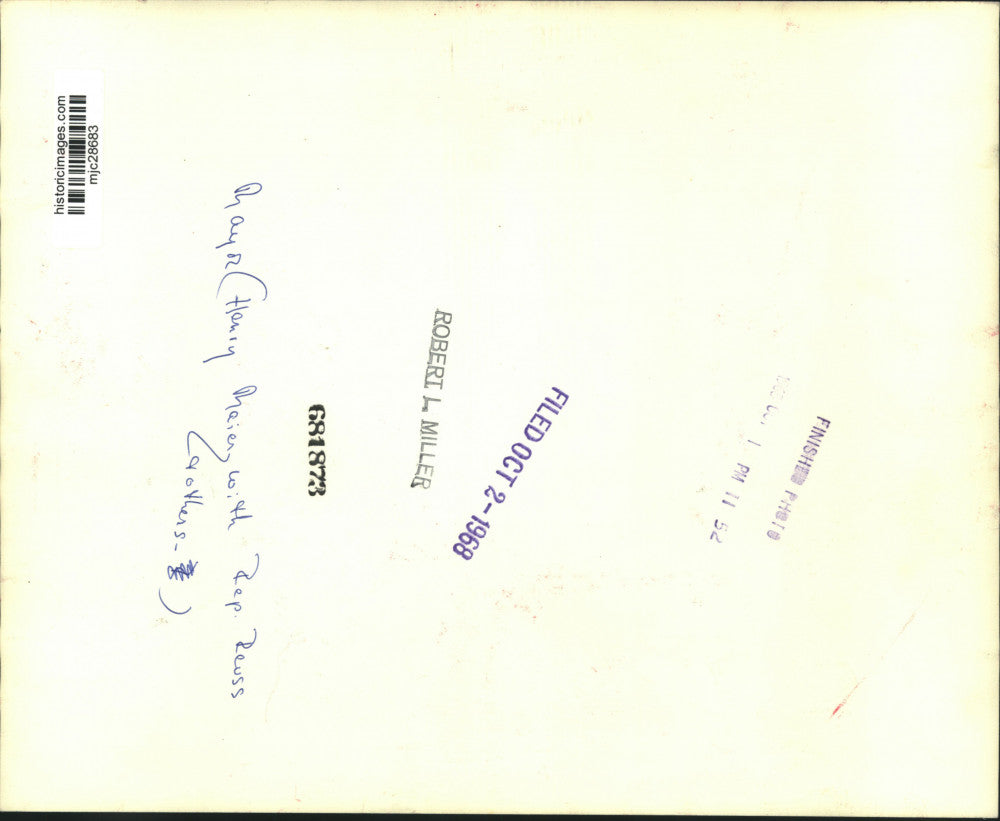 historicimages.com
mjc28683
Mayor (Henry Maier, with Rep. Reuss
(+others-
)
681873
ROBERT L. MILLER
FILED OCT 2-1968
FINISHED PHOTO
1 PM 11 52